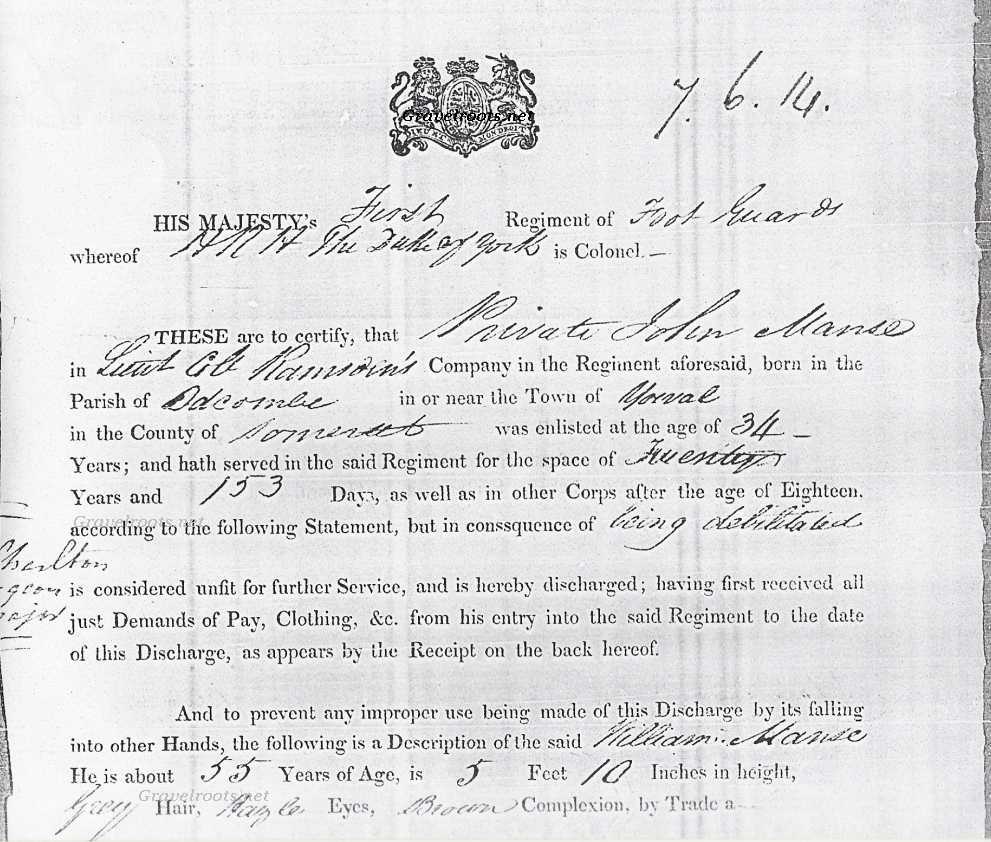 7. 6. 14.
Gravelroots.net
MON DROIT
HIS MAJESTY's First Regiment of Foot Guards
whereof HRH The Duke of York is Colonel.—
THESE are to certify, that Private John Manse
in Lieut Coll Company in the Regiment aforesaid, born in the
Parish of Odcombe in or near the Town of Yorval
in the County of Somerset was enlisted at the age of 34 —
Years; and hath served in the said Regiment for the space of Twenty
Years and 153 Days, as well as in other Corps after the age of Eighteen.
Gravelroots.net
according to the following Statement, but in conssquence of being debilitated
Charlton
is considered unfit for further Service, and is hereby discharged; having first received all
just Demands of Pay, Clothing, &c. from his entry into the said Regiment to the date
of this Discharge, as appears by the Receipt on the back hereof.
And to prevent any improper use being made of this Discharge by its falling
into other Hands, the following is a Description of the said William Manse
He is about 55 Years of Age, is 5 Feet 10 Inches in height,
Gravelroots.net
Grey Hair, Eyes, Brown Complexion, by Trade a